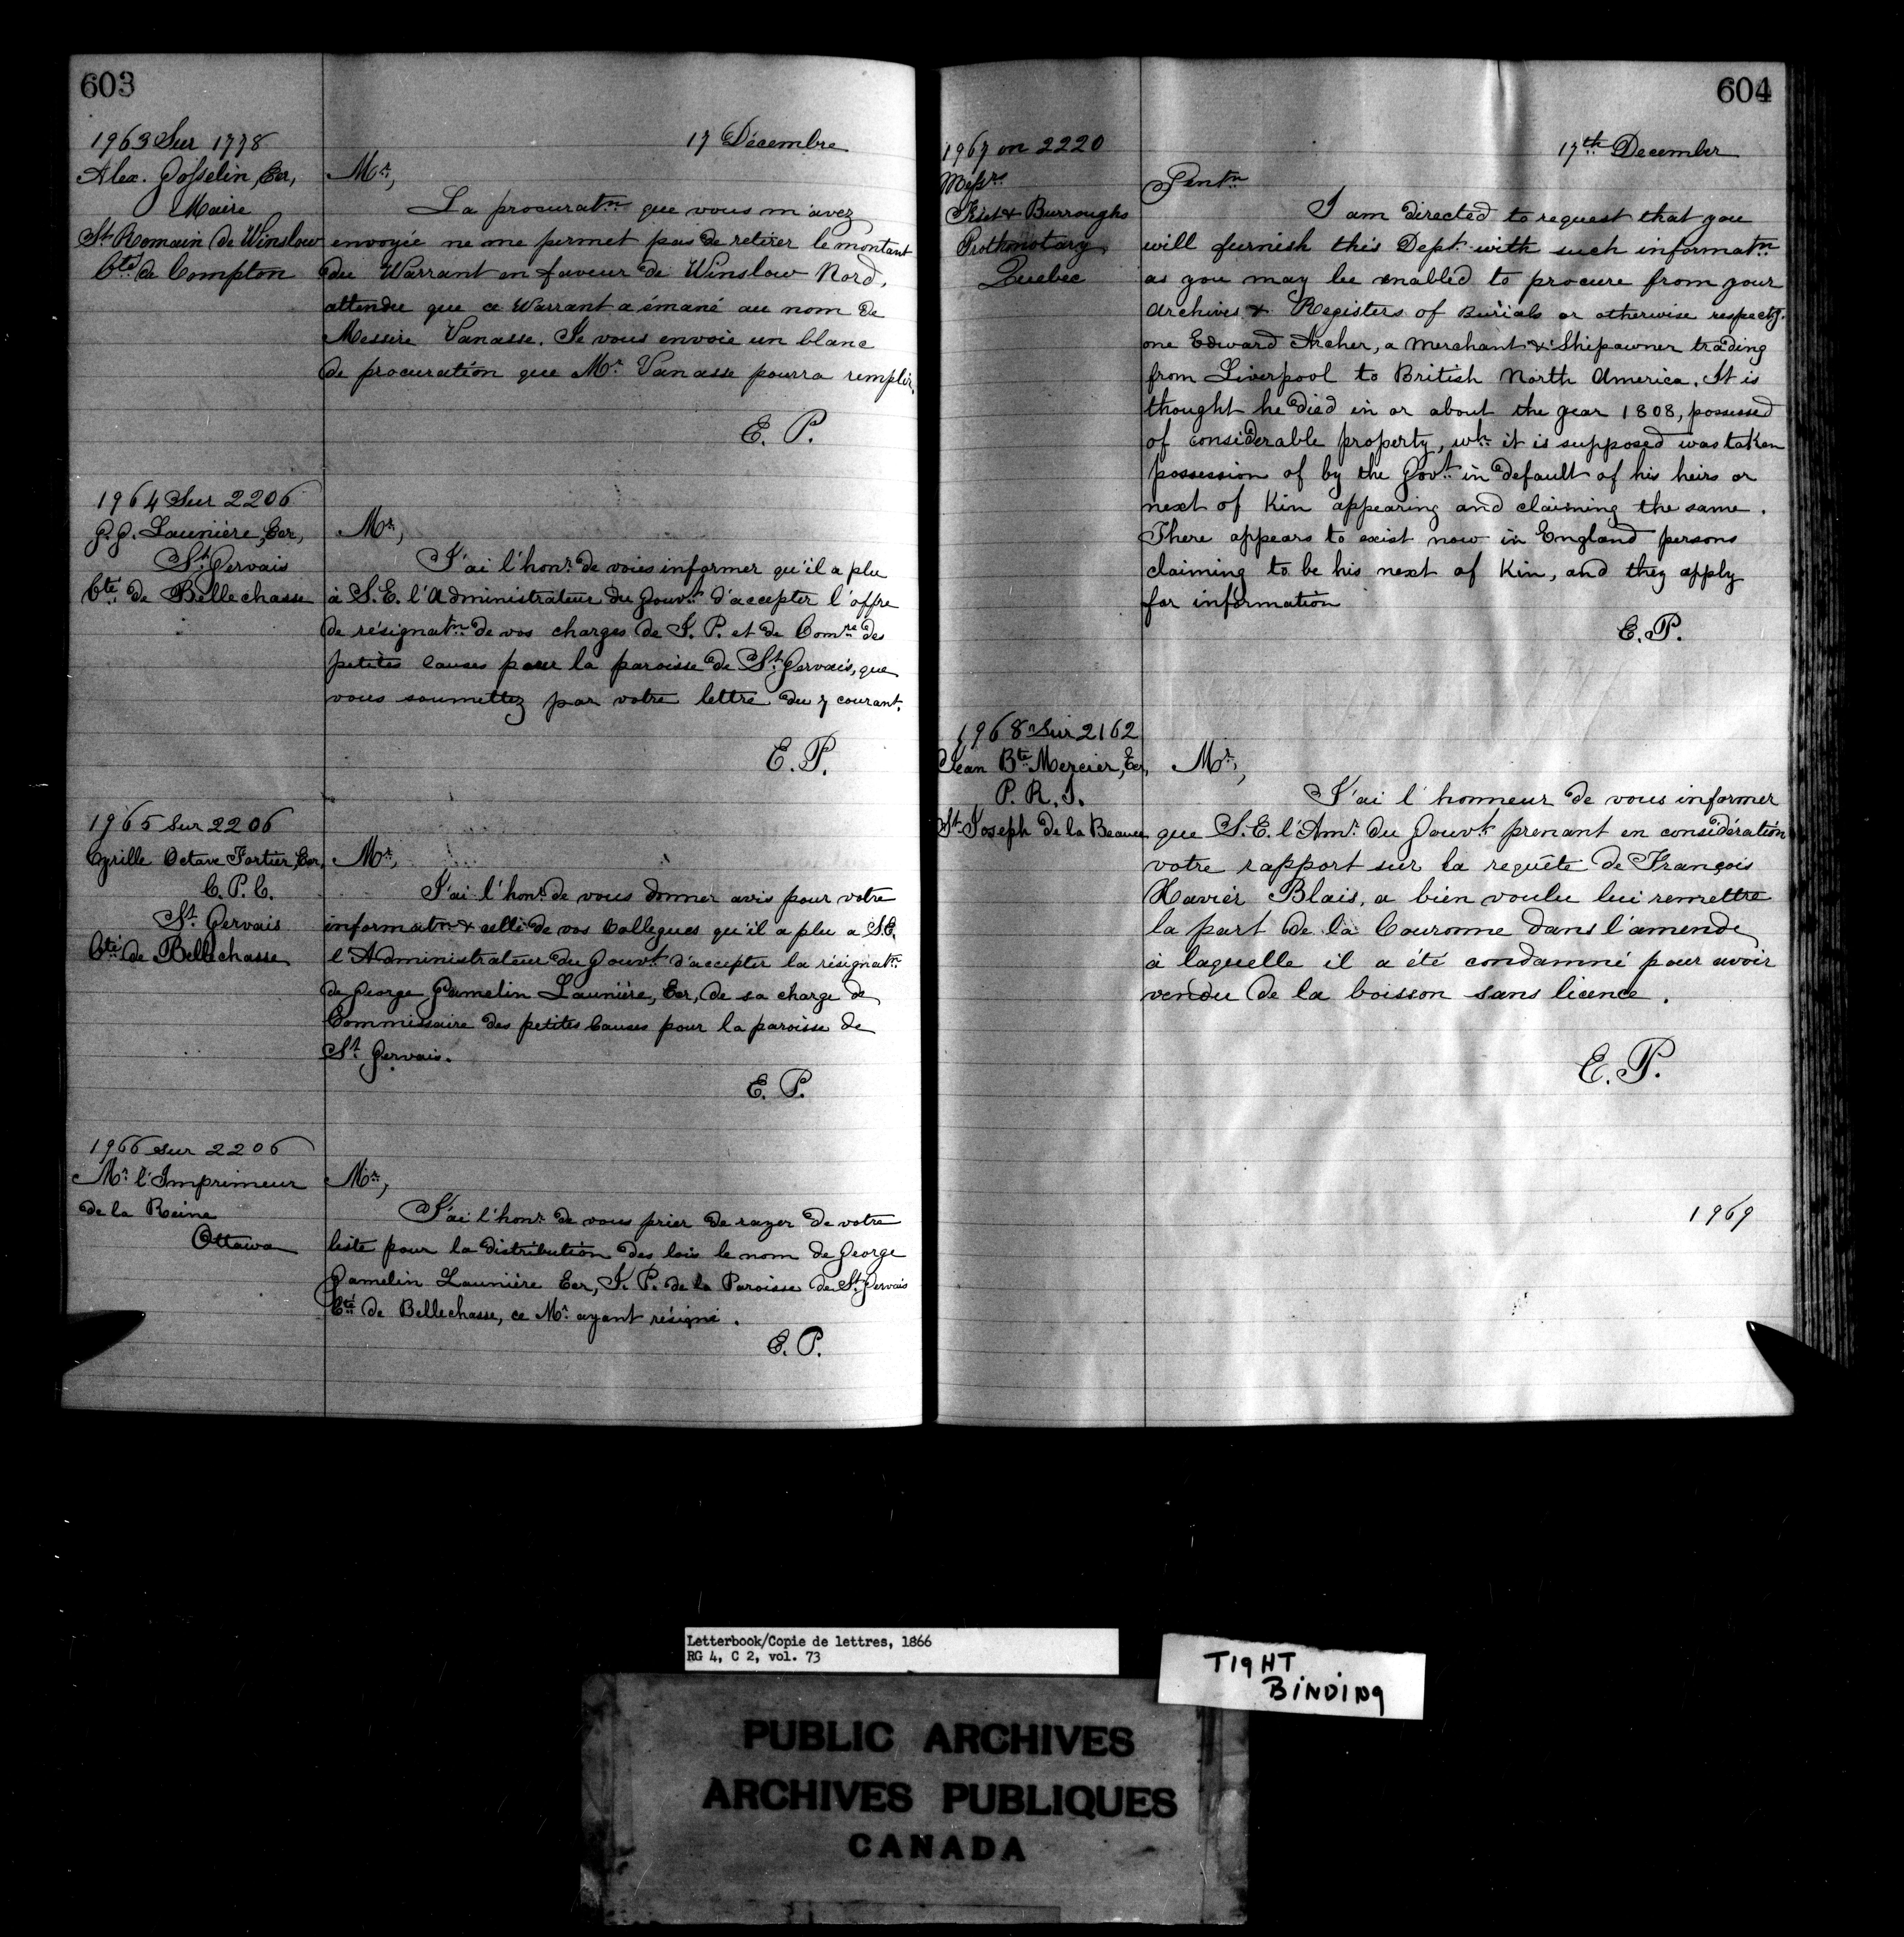 603
17 Décembre
1963 Sur 1778
Alex. Gosselin, Ecr,
Maire
St Romain de Winslow
Cté de Compton
Mr,
La procuratn que vous m'avez
envoyée ne me permet pas de retirer le montant
du Warrant en faveur de Winslow Nord,
attendu que ce Warrant a émané au nom de
Messire Vanasse. Je vous envoie un blanc
de procuration que Mr Vanasse pourra remplir.
E. P.
1964 Sur 2206
G. G. Launière, Ecr,
St Gervais
Cté de Bellechasse
Mr,
J'ai l'honr de vous informer qu'il a plu
à S. E. l'Administrateur du Gouvt d'accepter l'offre
de résignatn de vos charges de J. P. et de Comre des
petites causes pour la paroisse de St Gervais, que
vous soumettez par votre lettre du 7 courant.
E. P.
1965 Sur 2206
Cyrille Octave Fortier, Ecr,
C. P. C.
St Gervais
Cté de Bellechasse
Mr,
J'ai l'honr de vous donner avis pour votre
informatn & celle de vos Collegues qu'il a plu a S.E.
l'Administrateur du Gouvt d'accepter la résignatn
de George Gamelin Launière, Ecr, de sa charge de
Commissaire des petites Causes pour la paroisse de
St Gervais.
E. P.
1966 sur 2206
Mr l'Imprimeur
de la Reine
Ottawa
Mr,
J'ai l'honr de vous prier de rayer de votre
liste pour la distribution des lois le nom de George
Gamelin Launière Ecr, J. P. de la Paroisse de St Gervais
Cté de Bellechasse, ce Mr ayant résigné.
E. P.
604
17th December
1967 on 2220
Messrs
Fiset & Burroughs
Prothonotary
Quebec
Gentn
I am directed to request that you
will furnish this Dept with such informatn
as you may be enabled to procure from your
Archives & Registers of Burials or otherwise respectg.
one Edward Archer, a merchant & Shipowner trading
from Liverpool to British North America. It is
thought he died in or about the year 1808, possessed
of considerable property, wh it is supposed was taken
possession of by the Govt in default of his heirs or
next of Kin appearing and claiming the same.
There appears to exist now in England persons
claiming to be his next of Kin, and they apply
for information
E. P.
1968 Sur 2162
Jean Bte Mercier, Ecr,
P. R. I.
St Joseph de la Beauce
Mr,
J'ai l'honneur de vous informer
que S. E. l'Amr du Gouvt prenant en considération
votre rapport sur la requête de François
Xavier Blais, a bien voulu lui remettre
la part de la Couronne dans l'amende
à laquelle il a été condamné pour avoir
vendu de la boisson sans licence.
E. P.
1969
Letterbook/Copie de lettres, 1866
RG 4, C 2, vol. 73
TIGHT
BINDING
PUBLIC ARCHIVES
ARCHIVES PUBLIQUES
CANADA